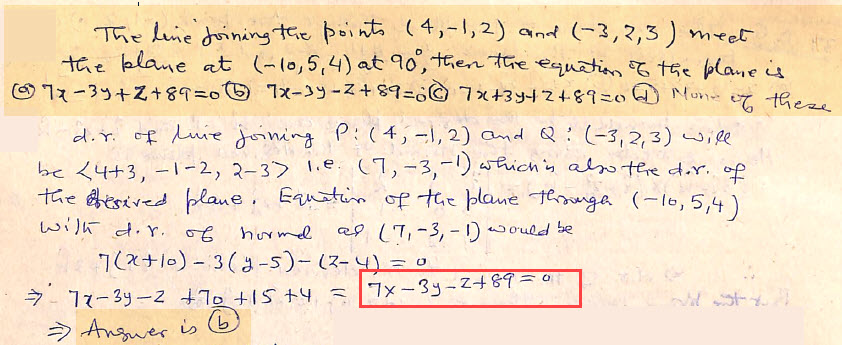 The line joining the points (4,-1,2) and (-3,2,3) meet
the plane at (-10,5,4) at 90°, then the equation of the plane is
(a) 7x-3y+z+89=0 (b) 7x-3y-z+89=0 (c) 7x+3y+z+89=0 (d) None of these
d.r. of line joining P:(4,-1,2) and Q:(-3,2,3) will
be <4+3, -1-2, 2-3> i.e. (7,-3,-1) which is also the d.r. of
the desired plane. Equation of the plane through (-10,5,4)
with d.r. of normal as (7,-3,-1) would be
7(x+10)-3(y-5)-(z-4)=0
⇒ 7x-3y-z+70+15+4 = 7x-3y-z+89=0
⇒ Answer is (b)